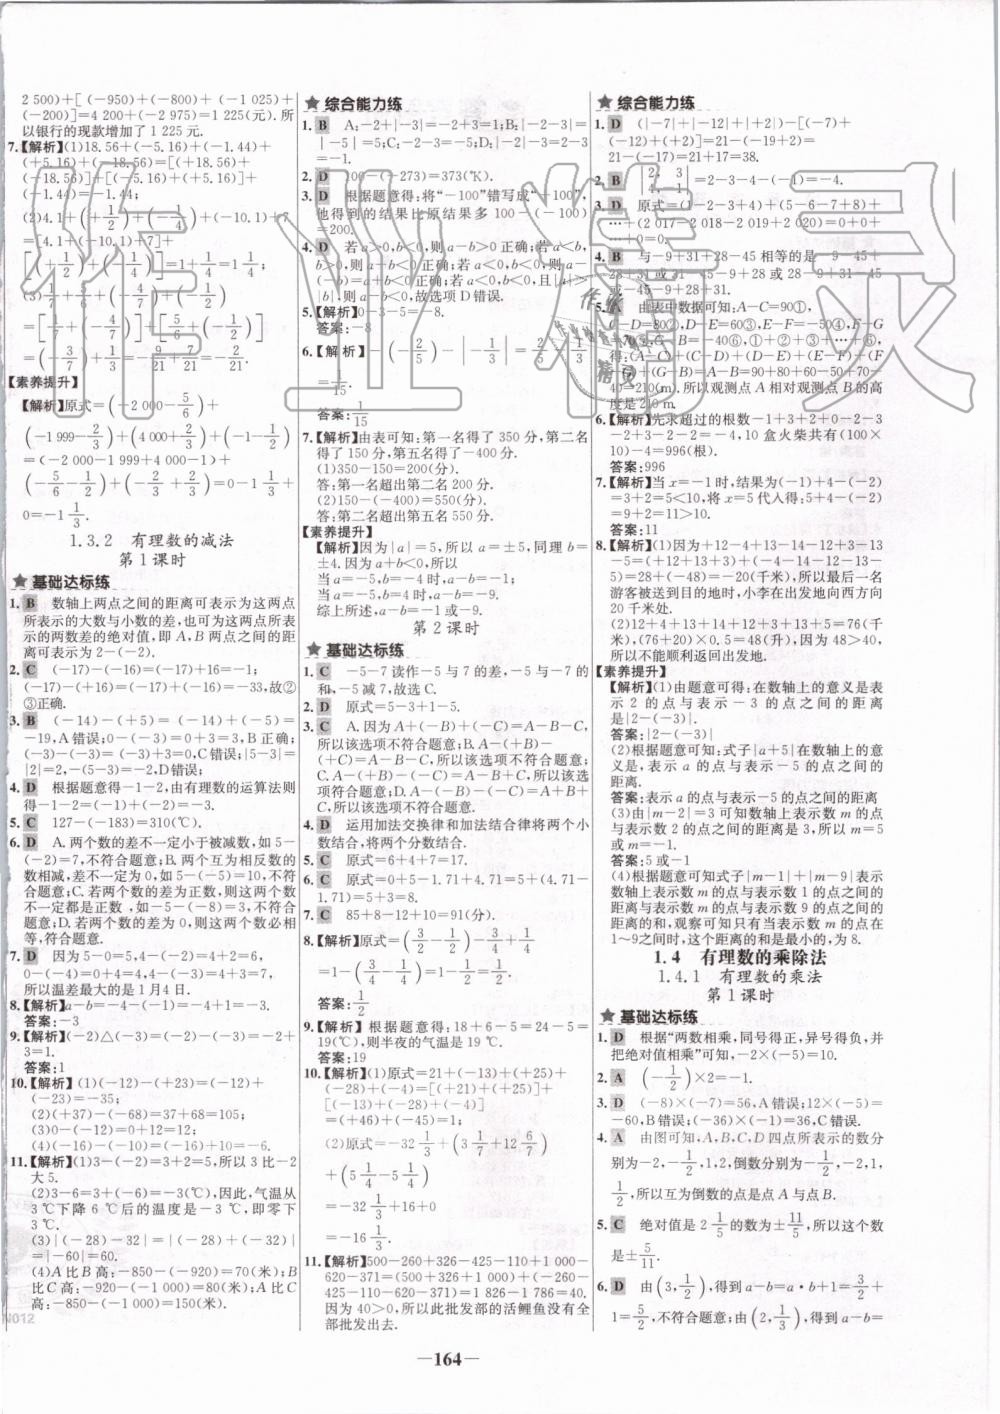 2 500)+[(-950)+(-800)+(-1 025)+
(-200)]=4 200+(-2 975)=1 225(元).
所以银行的现款增加了 1 225 元.
7.【解析】(1)18.56+(-5.16)+(-1.44)+
(+5.16)+(-18.56)=[(+18.56)+
(-18.56)]+[(-5.16)+(+5.16)]+
(-1.44)=-1.44;
=[4.1+(-10.1)+7]+
【素养提升】
【解析】原式=(-2 000-5/6)+
(-1 999-2/3)+(4 000+2/3)+(-1-1/2)
=(-2 000-1 999+4 000-1)+
(-5/6-1/2)+(-2/3+2/3)=0-1 1/3+
0=-1 1/3.
1.3.2 有理数的减法
第 1 课时
★ 基础达标练
1. B 数轴上两点之间的距离可表示为这两点
所表示的大数与小数的差,也可为这两点所表
示的两数差的绝对值,即 A,B 两点之间的距
离可表示为 2-(-2).
2. C (-17)-(-16)=(-17)+16=-1;
(-17)-(+16)=(-17)+(-16)=-33,故②
③正确.
3. B (-14)-(+5)=(-14)+(-5)=
-19,A错误;0-(-3)=0+3=3,B 正确;
(-3)-(-3)=(-3)+3=0,C错误;|5-3|=
|2|=2,-(5-3)=-2,D错误;
4. D 根据题意得-1-2,由有理数的运算法则
得-1-2=(-1)+(-2)=-3.
5. C 127-(-183)=310(℃).
6. D A.两个数的差不一定小于被减数,如 5-
(-2)=7,不符合题意;B.两个互为相反数的
数相减,差不一定为 0,如 5-(-5)=10,不符
合题意;C.若两个数的差为正数,则这两个数
不一定都是正数,如-5-(-8)=3,不符合
题意;D.若两个数的差为 0,则这两个数必相
等,符合题意.
7. D 因为 5-0=5,4-(-2)=4+2=6,
0-(-4)=0+4=4,4-(-3)=4+3=7;
所以温差最大的是 1 月 4 日.
8.【解析】a-b=-4-(-1)=-4+1=-3.
答案:-3
9.【解析】(-2)△(-3)=(-2)-(-3)=-2+
3=1.
答案:1
10.【解析】(1)(-12)-(+23)=(-12)+
(-23)=-35;
(2)(+37)-(-68)=37+68=105;
(3)0-(-12)=0+12=12;
(4)(-16)-(-10)=(-16)+10=-6.
11.【解析】(1)3-(-2)=3+2=5,所以 3 比-2
大 5.
(2)3-6=3+(-6)=-3(℃),因此,气温从
3 ℃下降 6 ℃后的温度是-3 ℃,即零下
3 ℃.
(3)|(-28)-(+32)|=|(-28)+(-32)|
=|-60|=60.
(4)A 比 B 高:-850-(-920)=70(米);B
比 C 高:-920-(-1 000)=80(米);A 比 C
高:-850-(-1 000)=150(米).
N012
★ 综合能力练
1. B A:-2+|-3|=-2+3=1;B:|-2-3|=
|-5|=5;
=-1.
2. D 100-(-273)=373(K).
3. D 根据题意得:将“-100”错写成“+100”,
他得到的结果比原结果多 100-(-100)
=200.
4. D 若a>0,b<0,则a-b>0 正确;若a<b,
b>0,则a-b<0正确;若a<0,b<0,则a-
(-b)<0正确;若 a<0,b<0,且|a|>
|b|,则 a-b<0,故选项 D 错误.
5.【解析】0-3-5=-8.
答案:-8
6.【解析】-(-2/5)-|-1/3|=2/5-1/3
=1/15.
答案:1/15
7.【解析】由表可知:第一名得了 350 分,第二名
得了 150 分,第五名得了-400 分.
(1)350-150=200(分).
答:第一名超出第二名 200 分.
(2)150-(-400)=550(分).
答:第二名超出第五名 550 分.
【素养提升】
【解析】因为|a|=5,所以 a=±5,同理 b=
±4.因为 a+b<0,所以
当 a=-5,b=-4 时,a-b=-1,
当 a=-5,b=4 时,a-b=-9.
综上所述,a-b=-1 或-9.
第 2 课时
★ 基础达标练
1. C -5-7 读作-5 与 7 的差,-5 与-7 的
和,-5 减 7,故选 C.
2. D 原式=5-3+1-5.
3. C A.因为 A+(-B)+(-C)=A-B-C,
所以该选项不符合题意;B.A-(+B)-
(+C)=A-B-C,所以该选项不符合题意;
C.A-(-B)+(-C)=A+B-C,所以该选项
符合题意;D.A-(-B)-(-C)=A+B+C,
所以该选项不符合题意.
4. D 运用加法交换律和加法结合律将两个小
数结合,将两个分数结合.
5. C 原式=6+4+7=17.
6. C 原式=0+5-1.71+4.71=5+(4.71-
1.71)=5+3=8.
7. C 85+8-12+10=91(分).
8.【解析】原式=(3/2-1/2)-3/4+1/4
=1-(3/4-1/4)=1-1/2=1/2.
答案:1/2
9.【解析】根据题意得:18+6-5=24-5=
19(℃),则半夜的气温是 19 ℃.
答案:19
10.【解析】(1)原式=21+(-13)+(+25)
+(-28)+(-4)=[(+21)+(+25)]+
[(-13)+(-28)+(-4)]
=(+46)+(-45)=1.
(2)原式=-32 1/3+(3 1/7+12 6/7)
+(5 1/4-5 1/4)
=-32 1/3+16+0
=-16 1/3.
11.【解析】500-260+326-425-110+1 000-
620-371=(500+326+1 000)+(-260-
425-110-620-371)=1 826-1 786=40.
因为 40>0,所以此批发部的活鲤鱼没有全
部批发出去.
★ 综合能力练
1. D (|-7|+|-12|+|+2|)-[(-7)+
(-12)+(+2)]=21-(-19+2)=
21-(-17)=21+17=38.
2. B |2 3/4 -1|=2-3-4-(-1)=-4.
3. D 原式=(1-2-3+4)+(5-6-7+8)+
…+(2 017-2 018-2 019+2 020)=0+0+
…+0=0.
4. B 与-9+31+28-45 相等的是-9-45+
28+31 或 31-45-9+28 或 28-9+31-45
或-45-9+28+31.
5. A 由表中数据可知:A-C=90①,
C-D=80②,D-E=60③,E-F=-50④,F-G
=70⑤,G-B=-40⑥,①+②+③+…+⑥,
+(G-B)=A-B=90+80+60-50+70-
40=210(m).所以观测点 A 相对观测点 B 的高
度是 210 m.
6.【解析】先求超过的根数-1+3+2+0-2-3
-2+3-2-2=-4,10 盒火柴共有(100×
10)-4=996(根).
答案:996
7.【解析】当 x=-1 时,结果为(-1)+4-(-2)
=3+2=5<10,将 x=5 代入得:5+4-(-2)
=9+2=11.
答案:11
8.【解析】(1)因为+12-4+13-14-12+3-13
-5=(+12+13+3)+(-4-14-12-13-5)=
28+(-48)=-20(千米),所以最后一名
游客被送到目的地时,小李在出发地向西方向
20 千米处.
(2)12+4+13+14+12+3+13+5=76(千
米),(76+20)×0.5=48(升),因为 48>40,
所以不能顺利返回出发地.
【素养提升】
【解析】(1)由题意可得:在数轴上的意义是表
示 2 的点与表示-3 的点之间的距离
是|2-(-3)|.
答案:|2-(-3)|
(2)根据题意可知:式子|a+5|在数轴上的意
义是,表示 a 的点与表示-5 的点之间的
距离.
答案:表示 a 的点与表示-5 的点之间的距离
(3)由|m-2|=3 可知数轴上表示数 m 的点
与表示数 2 的点之间的距离是 3,所以 m=5
或 m=-1.
答案:5 或-1
(4)根据题意可知式子|m-1|+|m-9|表示
数轴上表示数 m 的点与表示数 1 的点之间的
距离与表示数 m 的点与表示数 9 的点之间的
距离的和,观察可知只有当表示数 m 的点在
1～9 之间时,这个距离的和是最小的,为 8.
1.4 有理数的乘除法
1.4.1 有理数的乘法
第 1 课时
★ 基础达标练
1. D 根据“两数相乘,同号得正,异号得负,并
把绝对值相乘”可知,-2×(-5)=10.
2. A (-1/2)×2=-1.
3. D (-8)×(-7)=56,A错误;12×(-5)=
-60,B错误;(-36)×(-1)=36,C错误.
4. A 由图可知,A,B,C,D 四点所表示的数分
别为-2,-1/2,1,2,倒数分别为-1/2,-2,1,
1/2,所以互为倒数的点是点 A 与点 B.
5. C 绝对值是 2 1/5 的数为±11/5,所以这个数
是±5/11.
6. D 由(3,3/2),得到 a-b=a·b+1=3/2+
1=5/2,不符合题意;由(2,1/3),得到 a-b=
—164—